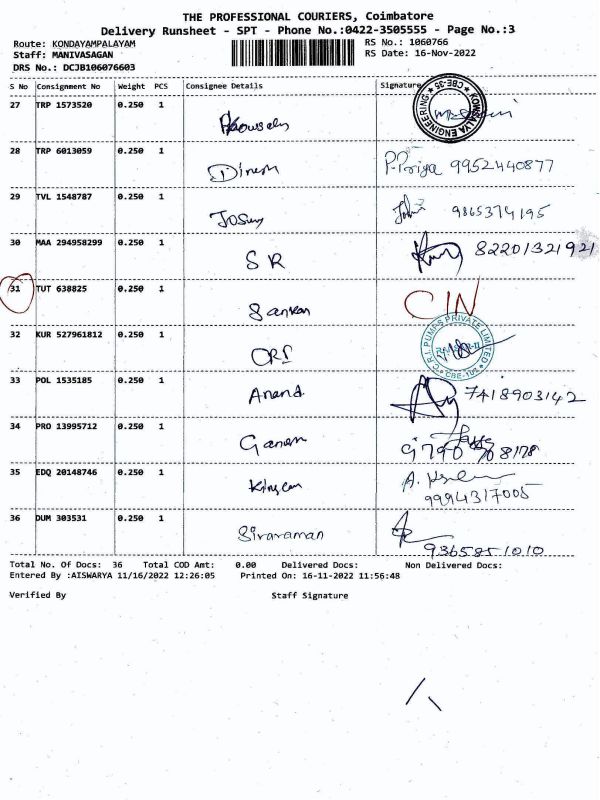 THE PROFESSIONAL COURIERS, Coimbatore
Delivery Runsheet - SPT - Phone No.:0422-3505555 - Page No.:3
Route: KONDAYAMPALAYAM RS No.: 1060766
Staff: MANIVASAGAN RS Date: 16-Nov-2022
DRS No.: DCJB106076603
S No Consignment No Weight PCS Consignee Details Signature
27 TRP 1573520 0.250 1
KOUSALYA ENGINEERING CBE-35
28 TRP 6013059 0.250 1 Dinesh P.Priya 9952440877
29 TVL 1548787 0.250 1 9865374195
30 MAA 294958299 0.250 1 SR 82201321921
31 TUT 638825 0.250 1 CIN
32 KUR 527961812 0.250 1 CRI
C.R.I. PUMPS PRIVATE LIMITED
33 POL 1535185 0.250 1 Anand 7418903142
34 PRO 13995712 0.250 1 Ganesh
35 EDQ 20148746 0.250 1 9994317005
36 DUM 303531 0.250 1 Sivaraman 9365851010
Total No. Of Docs: 36 Total COD Amt: 0.00 Delivered Docs: Non Delivered Docs:
Entered By :AISWARYA 11/16/2022 12:26:05 Printed On: 16-11-2022 11:56:48
Verified By Staff Signature